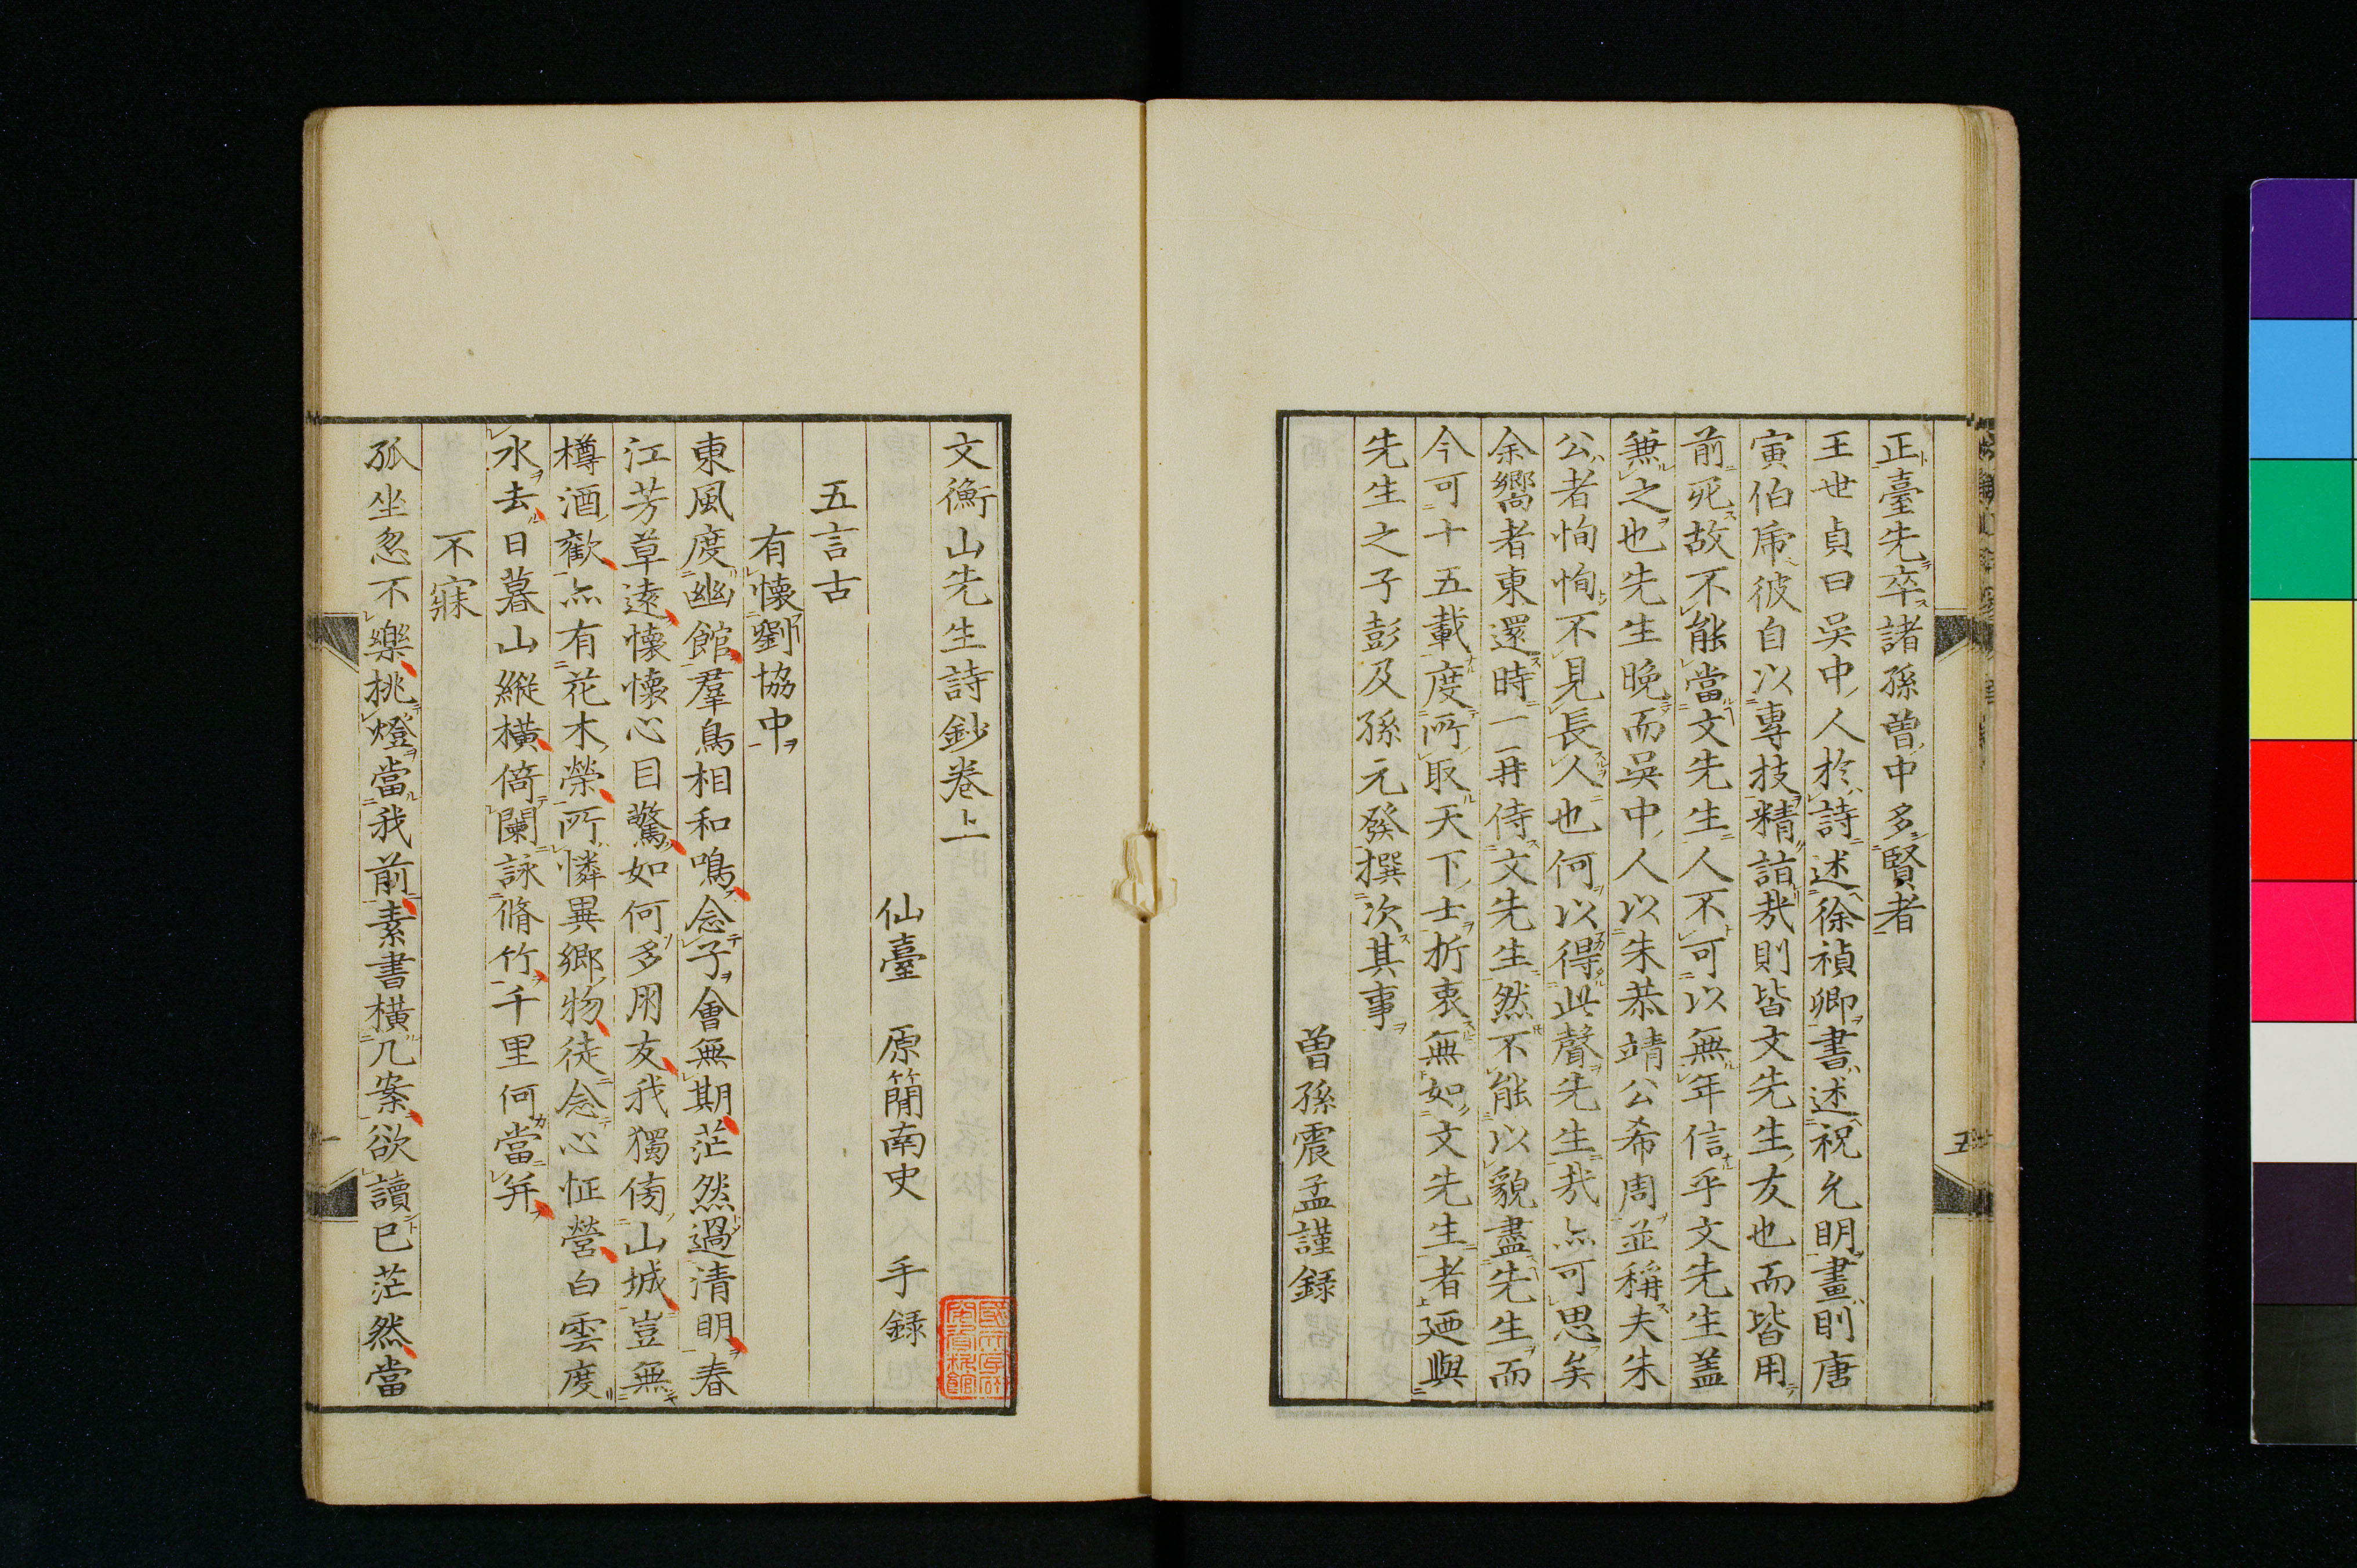 正臺先卒諸孫曽中多賢者
王世貞曰吳中人於詩述徐禎卿書述祝允明畫則唐
寅伯虎彼自以專技精詣哉則皆文先生友也而皆用
前死故不能當文先生人不可以無年信乎文先生盖
兼之也先生晚而吳中人以朱恭靖公希周並稱夫朱
公者恂恂不見長人也何以得此聲先生哉亦可思矣
余嚮者東還時一再侍文先生然不能以貌盡先生而
今可十五載度所取天下士折衷無如文先生者廼與
先生之子彭及孫元發撰次其事
曽孫震孟謹録
五
文衡山先生詩鈔卷上
仙臺 原簡南史 手録
五言古
有懷劉協中
東風度幽館羣鳥相和鳴念子會無期茫然過清明春
江芳草遠懷懷心目驚如何多朋友我獨傍山城豈無
樽酒歡亦有花木榮所憐異鄉物徒念心怔營白雲度
水去日暮山縱橫倚闌詠脩竹千里何當并
不寐
孤坐忽不樂挑燈當我前素書橫几案欲讀已茫然當